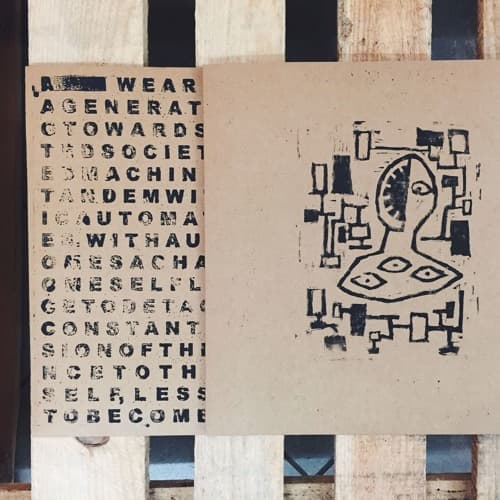 A WEAR
AGENERAT
CTOWARDS
TEDSOCIET
EDMACHIN
TANDEMWI
ICAUTOMA
ER.WITHAU
OMESACHA
ONESELFL
GETODETAC
CONSTANT
SIONOFTH
NCETOTH
SELF,LESS
TOBECOME